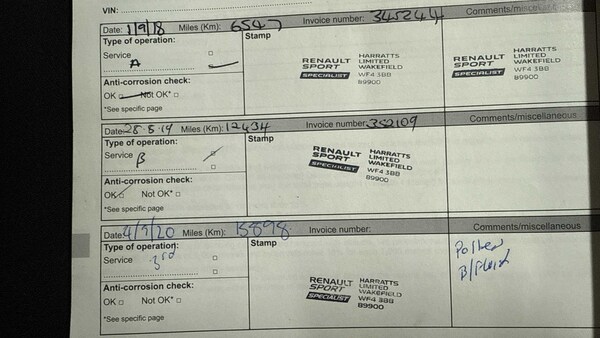 VIN:
Date: 1/9/18 Miles (Km): 6547 Invoice number: 345244 Comments/miscellaneous
Type of operation: Stamp
Service
A
Anti-corrosion check:
OK Not OK*
*See specific page
RENAULT SPORT SPECIALIST
HARRATTS LIMITED WAKEFIELD WF4 3BB 89900
RENAULT SPORT SPECIALIST
HARRATTS LIMITED WAKEFIELD WF4 3BB 89900
Date: 28-8-19 Miles (Km): 12434 Invoice number: 352109 Comments/miscellaneous
Type of operation: Stamp
Service
B
Anti-corrosion check:
OK Not OK*
*See specific page
RENAULT SPORT SPECIALIST
HARRATTS LIMITED WAKEFIELD WF4 3BB 89900
Date: 4/9/20 Miles (Km): 15898 Invoice number: Comments/miscellaneous
Type of operation: Stamp
Service
3rd
Anti-corrosion check:
OK Not OK*
*See specific page
RENAULT SPORT SPECIALIST
HARRATTS LIMITED WAKEFIELD WF4 3BB 89900
Pollen
B/Fluid